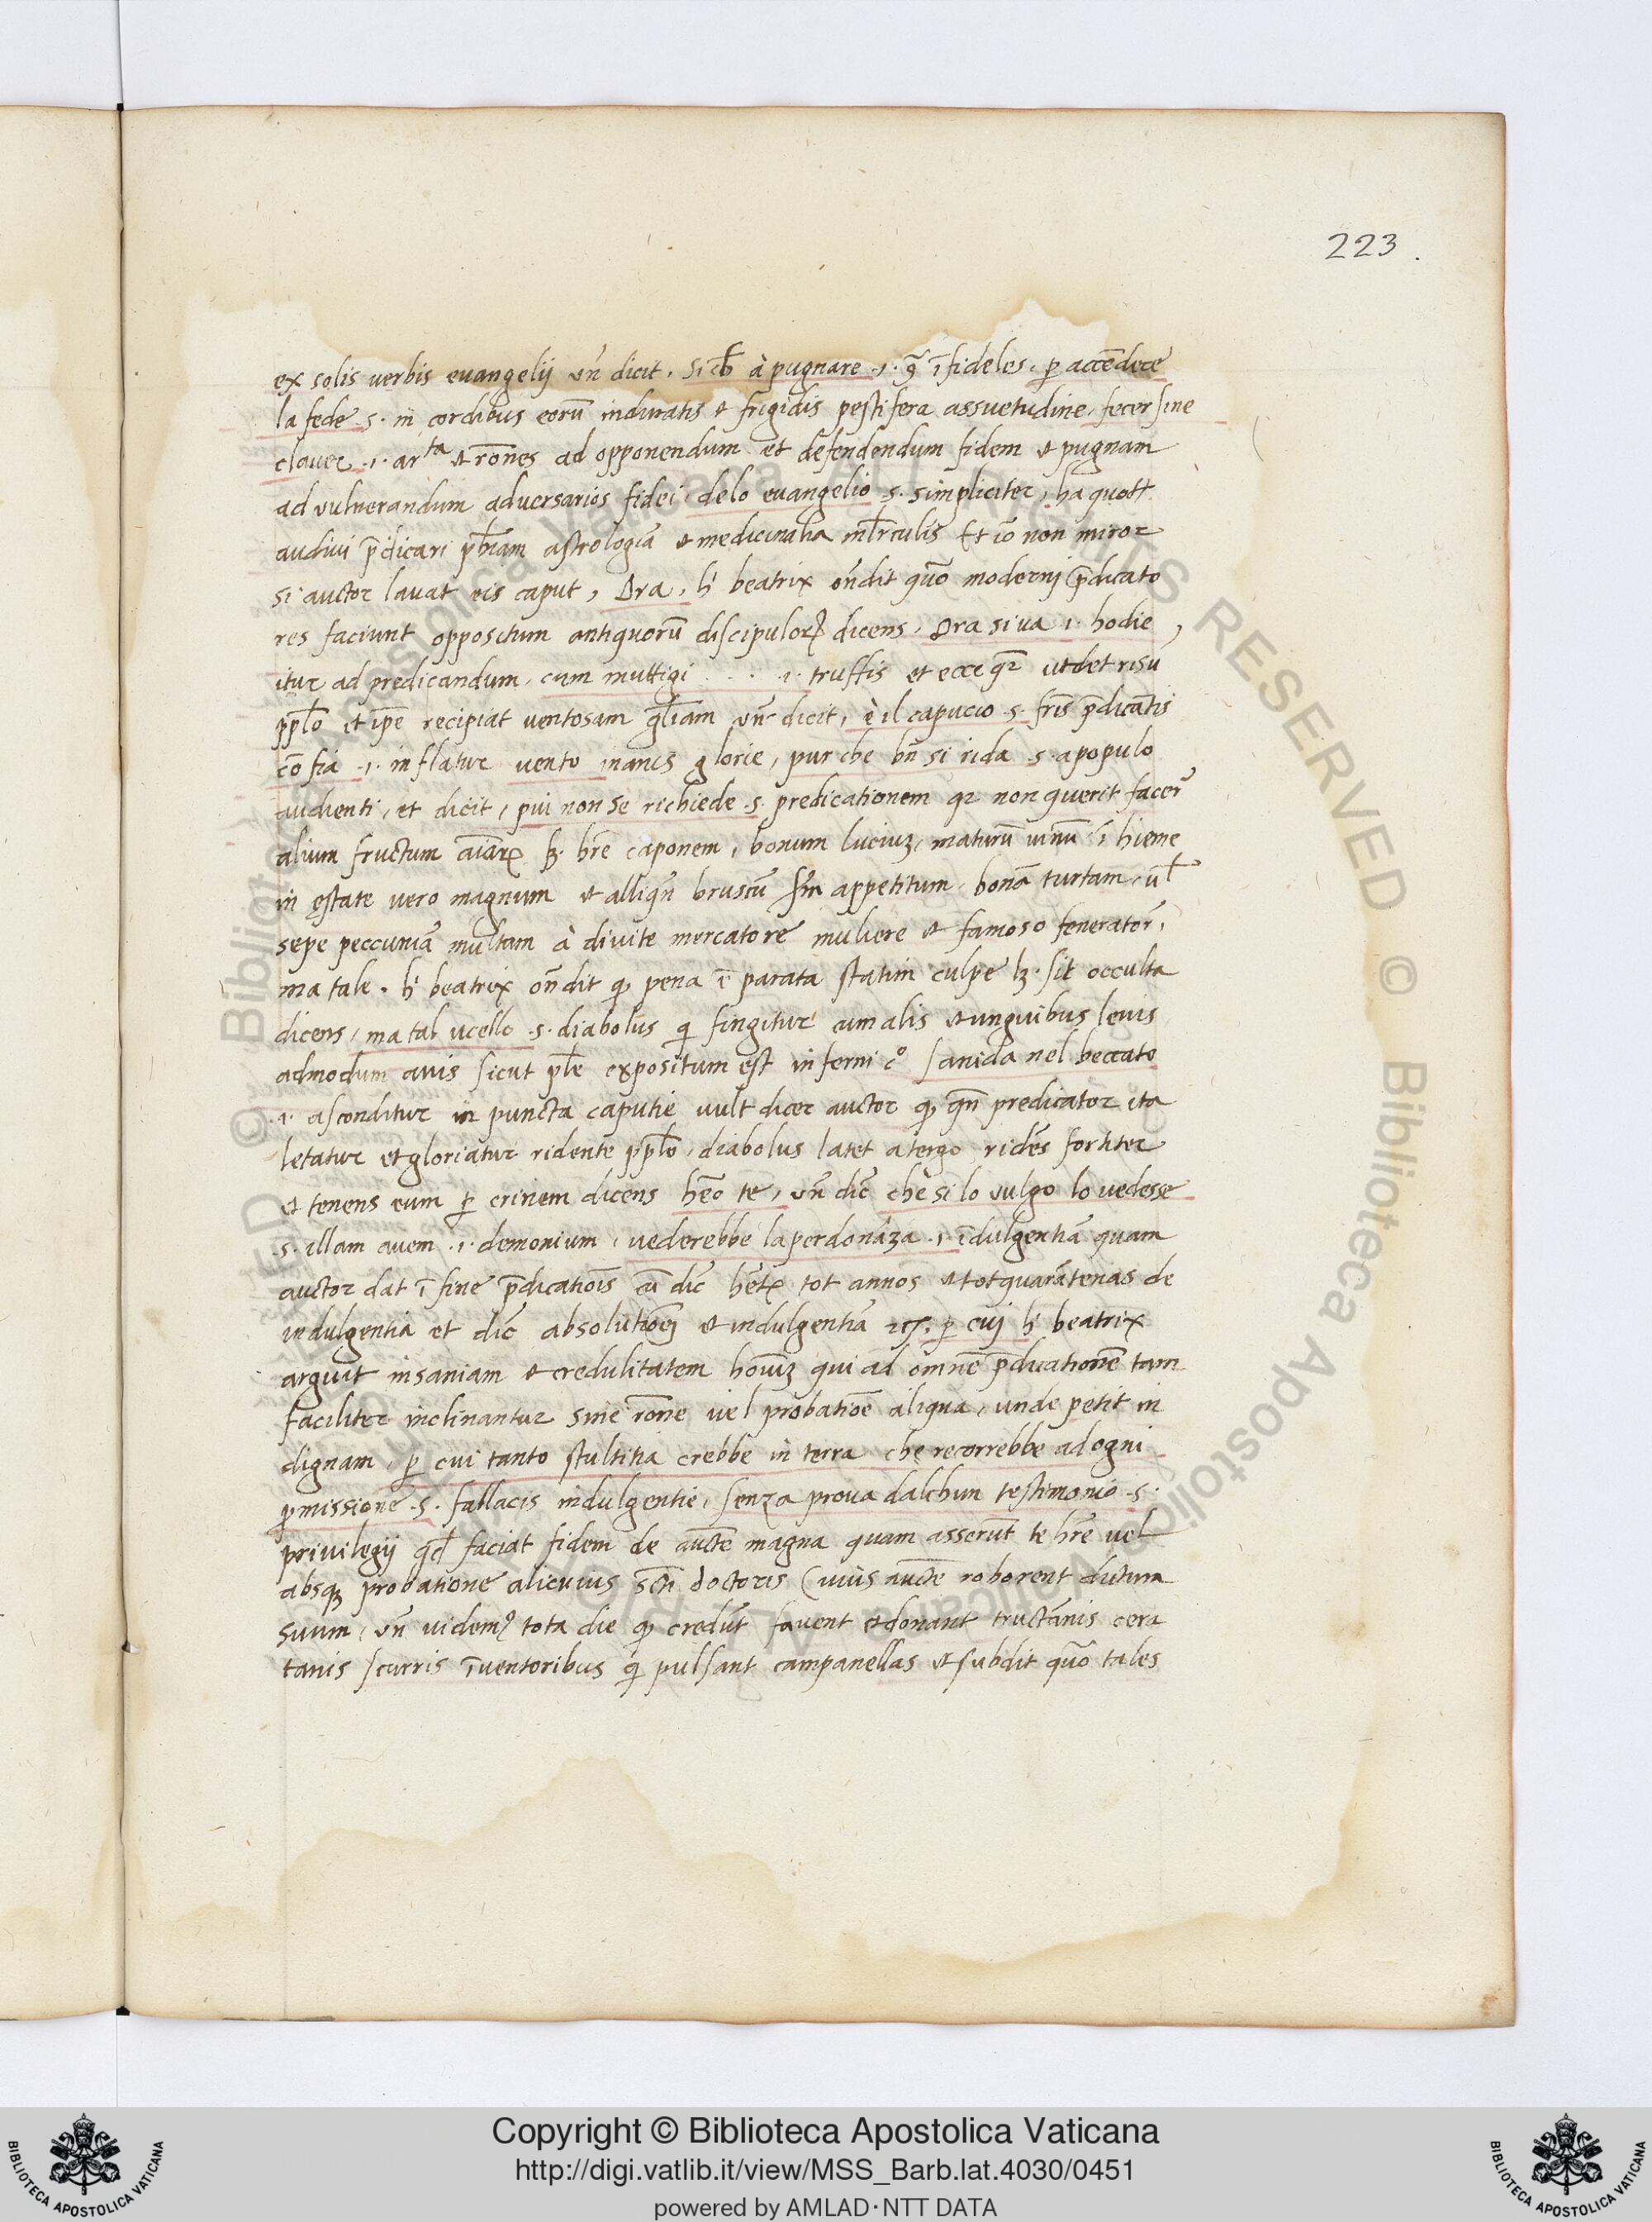 223.
ex solis verbis evangelij vñ dicit. Si cħ à pugnare .i. ꝯ̃ ĩfideles. ꝑ accẽdere
la fede .s. in cordibus eorũ induratis et frigidis pestifera assuetudine. fecer sine
claver .i. arᵗᵃ et rõnes ad opponendum et defendendum fidem et pugnam
ad vulnerandum adversarios fidei. delo evangelio .s. simpliciter, ha quott
audivi p̃dicari astrologiã et medicinalia Et iõ non miror
si auctor lavat eis caput, Ora, h' beatrix oñdit quõ moderni p̃dicato
res faciunt oppositum antiquorũ discipuloꝝ dicens. Ora si va .i. hodie,
itur ad predicandum, cum muttigi . . . .i. truffis et ecce qꝛ ut det risũ
pp̃lo et ipẽ recipiat ventosam gl̃iam vñ dicit, è il capucio .s. fris p̃dicãtis
cõfia .i. inflatur vento inanis glorie, pur che bñ si rida .s. a populo
audienti, et dicit, pui non se richiede .s. predicationem qꝛ non querit facer̃
alium fructum aĩarꝫ hr̃e caponem, bonum luciuꝫ, maturũ vinũ ĩ hieme
in estate vero magnum et alliqñ bruscũ s̃m appetitum. bonã turtam. vl̃
sepe peccuniã multam à divite mercatore muliere et famoso fenerator̃,
ma tale. h' beatrix oñdit ꝙ pena ẽ parata statim culpe lꝫ. sit occulta
dicens, ma tal ucello .s. diabolus qͥ fingitur cum alis et unguibus levis
admodum avis sicut pl̃e expositum est inferni c° sanida nel beccato
.i. asconditur in puncta caputie vult dicer auctor ꝙ qñ predicator ita
letatur et gloriatur ridente pp̃lo, diabolus latet a tergo ridẽs fortiter
et tenens eum ꝑ crinem dicens hẽo te, vñ dic̃ che si lo vulgo lo vedesse
.s. illam avem .i. demonium, vederebbe la perdonãza .i. ĩdulgentiã quam
auctor dat ĩ fine p̃dicatiõis cũ dic̃ hẽtꝫ tot annos et tot quarãtenas de
indulgentia et dic̃ absolutiõem et indulgentiã ꝛcꝭ. ꝑ cui h' beatrix
arguit insaniam et credulitatem hoĩuꝫ qui ad omnẽ p̃dicationẽ tam
faciliter inclinantur sine rõne vel probatiõe aliqua, unde petit in
dignam, ꝑ cui tanto stultitia crebbe in terra che recorrebbe ad ogni
ꝓmissione .s. fallacis indulgentie, senza prova dalchun testimonio .s.
privilegij qd̃ faciat fidem de auctẽ magna quam asserũt te hr̃e vel
absqꝫ probatione alicuius sc̃ti doctoris cuius auctẽ roborent dictum
suum, vñ videmꝰ tota die ꝙ credũt favent et donant tructãnis cerz
tanis scurris ĩventoribus qͥ pulsant campanellas et subdit quõ tales
Copyright © Biblioteca Apostolica Vaticana
http://digi.vatlib.it/view/MSS_Barb.lat.4030/0451
powered by AMLAD·NTT DATA
BIBLIOTECA APOSTOLICA VATICANA
BIBLIOTECA APOSTOLICA VATICANA